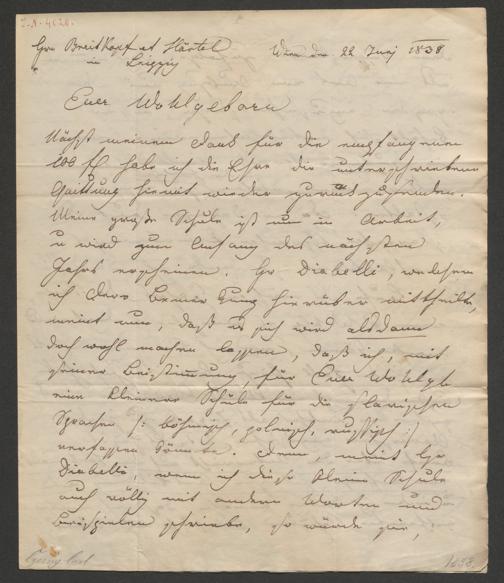 I.N. 4620.
Hrn Breitkopf et Härtel
in Leipzig
Wien den 22 Juny 1838
Euer Wohlgeborn
Nächst meinem Dank für die empfangenen
100 fl habe ich die Ehre die unterschriebene
Quittung hiemit wieder zurückzusenden.
Meine große Schule ist nun in Arbeit,
u wird zum Anfang des nächsten
Jahrs erscheinen. Hr Diabelli, welchem
ich Dero Bemerkung hierüber mittheilte,
meint nun, daß es sich wird alsdann
doch wohl machen lassen, daß ich, mit
seiner Beistimmung, für Euer Wohlgb
eine kleinere Schule für die slavischen
Sprachen /: böhmisch, polnisch, russisch :/
verfassen könnte. Denn, meint Hr
Diabelli, wenn ich diese kleine Schule
auch völlig mit andern Worten und
Beispielen schriebe, so würde sie,
Czerny Carl
1838.